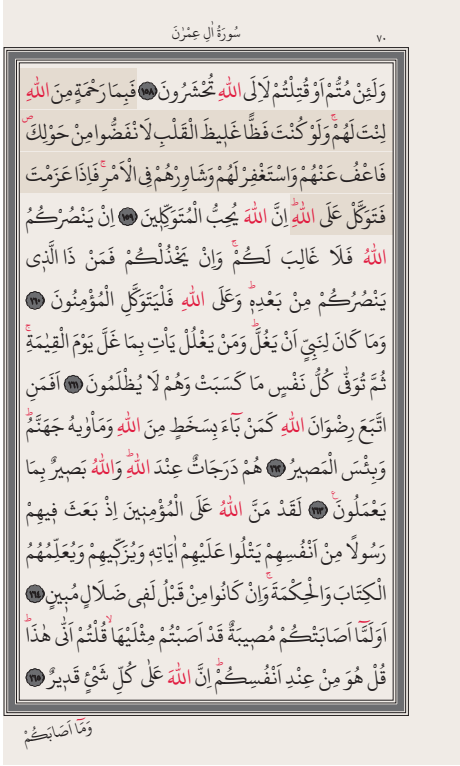 ٧٠ سُورَةُ اٰلِ عِمْرٰنَ
وَلَئِنْ مُتُّمْ اَوْ قُتِلْتُمْ لَاِلَى اللّٰهِ تُحْشَرُونَ ﴿١٥٨﴾ فَبِمَا رَحْمَةٍ مِنَ اللّٰهِ
لِنْتَ لَهُمْۚ وَلَوْ كُنْتَ فَظًّا غَلٖيظَ الْقَلْبِ لَانْفَضُّوا مِنْ حَوْلِكَࣕ
فَاعْفُ عَنْهُمْ وَاسْتَغْفِرْ لَهُمْ وَشَاوِرْهُمْ فِي الْاَمْرِۚ فَاِذَا عَزَمْتَ
فَتَوَكَّلْ عَلَى اللّٰهِؕ اِنَّ اللّٰهَ يُحِبُّ الْمُتَوَكِّلٖينَ ﴿١٥٩﴾ اِنْ يَنْصُرْكُمُ
اللّٰهُ فَلَا غَالِبَ لَكُمْۚ وَاِنْ يَخْذُلْكُمْ فَمَنْ ذَا الَّذٖي
يَنْصُرُكُمْ مِنْ بَعْدِهٖؕ وَعَلَى اللّٰهِ فَلْيَتَوَكَّلِ الْمُؤْمِنُونَ ﴿١٦٠﴾
وَمَا كَانَ لِنَبِيٍّ اَنْ يَغُلَّؕ وَمَنْ يَغْلُلْ يَأْتِ بِمَا غَلَّ يَوْمَ الْقِيٰمَةِۚ
ثُمَّ تُوَفّٰى كُلُّ نَفْسٍ مَا كَسَبَتْ وَهُمْ لَا يُظْلَمُونَ ﴿١٦١﴾ اَفَمَنِ
اتَّبَعَ رِضْوَانَ اللّٰهِ كَمَنْ بَٓاءَ بِسَخَطٍ مِنَ اللّٰهِ وَمَأْوٰيهُ جَهَنَّمُؕ
وَبِئْسَ الْمَصٖيرُ ﴿١٦٢﴾ هُمْ دَرَجَاتٌ عِنْدَ اللّٰهِؕ وَاللّٰهُ بَصٖيرٌ بِمَا
يَعْمَلُونَ ﴿١٦٣﴾ لَقَدْ مَنَّ اللّٰهُ عَلَى الْمُؤْمِنٖينَ اِذْ بَعَثَ فٖيهِمْ
رَسُولًا مِنْ اَنْفُسِهِمْ يَتْلُوا عَلَيْهِمْ اٰيَاتِهٖ وَيُزَكّٖيهِمْ وَيُعَلِّمُهُمُ
الْكِتَابَ وَالْحِكْمَةَۚ وَاِنْ كَانُوا مِنْ قَبْلُ لَفٖي ضَلَالٍ مُبٖينٍ ﴿١٦٤﴾
اَوَلَمَّٓا اَصَابَتْكُمْ مُصٖيبَةٌ قَدْ اَصَبْتُمْ مِثْلَيْهَاۙ قُلْتُمْ اَنّٰى هٰذَاؕ
قُلْ هُوَ مِنْ عِنْدِ اَنْفُسِكُمْؕ اِنَّ اللّٰهَ عَلٰى كُلِّ شَيْءٍ قَدٖيرٌ ﴿١٦٥﴾
وَمَٓا اَصَابَكُمْ